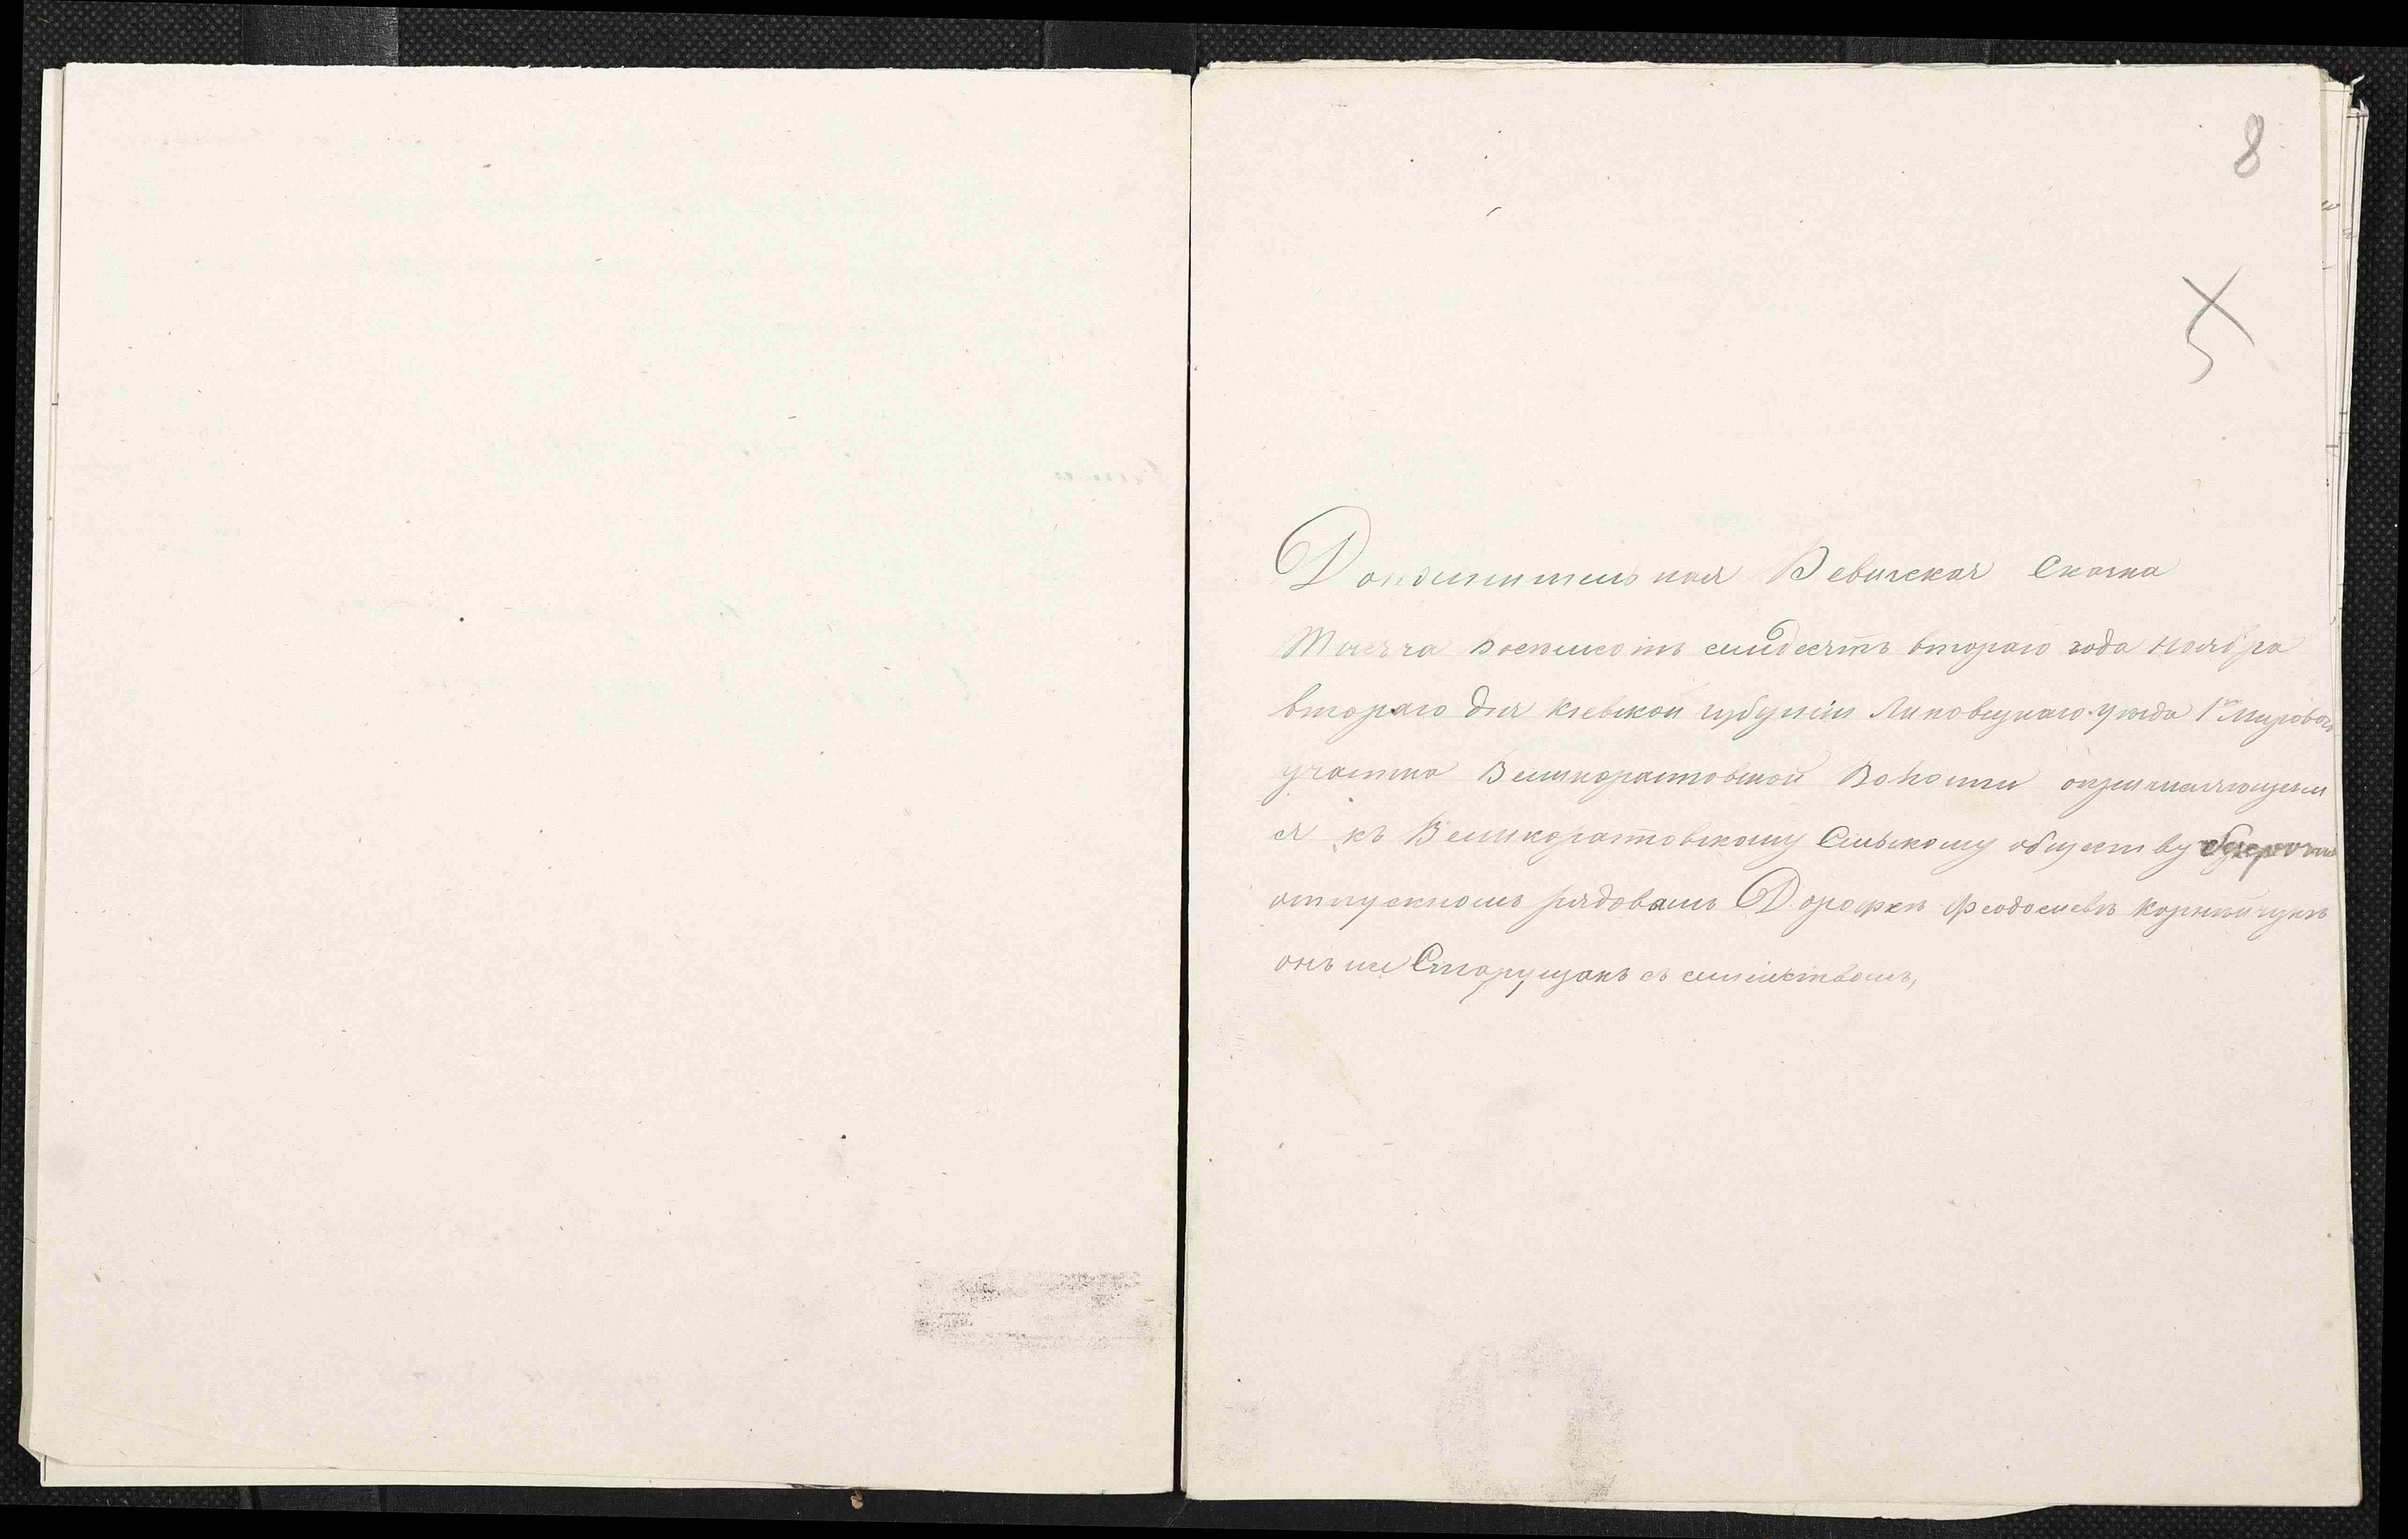 8
5
Дополнительная Ревизская Сказка
Тысяча восемьсотъ семьдесятъ втораго года Ноября
втораго дня Кіевской губерніи Липовецкаго уѣзда 1го Мирового
участка Великоратовской Волости о причисляющем
ся къ Великоратовскому Сельскому обществу
отпускномъ рядовомъ Дорофеѣ Феодосіевѣ Корнійчукѣ
онъ же Старущакъ съ семействомъ,